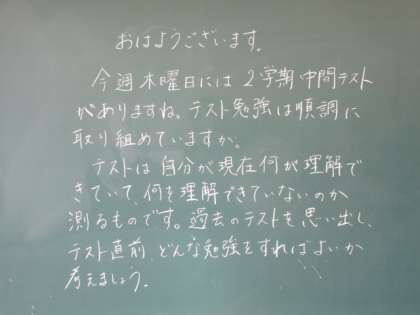 おはようございます。
今週木曜日には2学期中間テスト
がありますね。テスト勉強は順調に
取り組めていますか。
テストは自分が現在何が理解で
きていて、何を理解できていないのか
測るものです。過去のテストを思い出し、
テスト直前、どんな勉強をすればよいか
考えましょう。